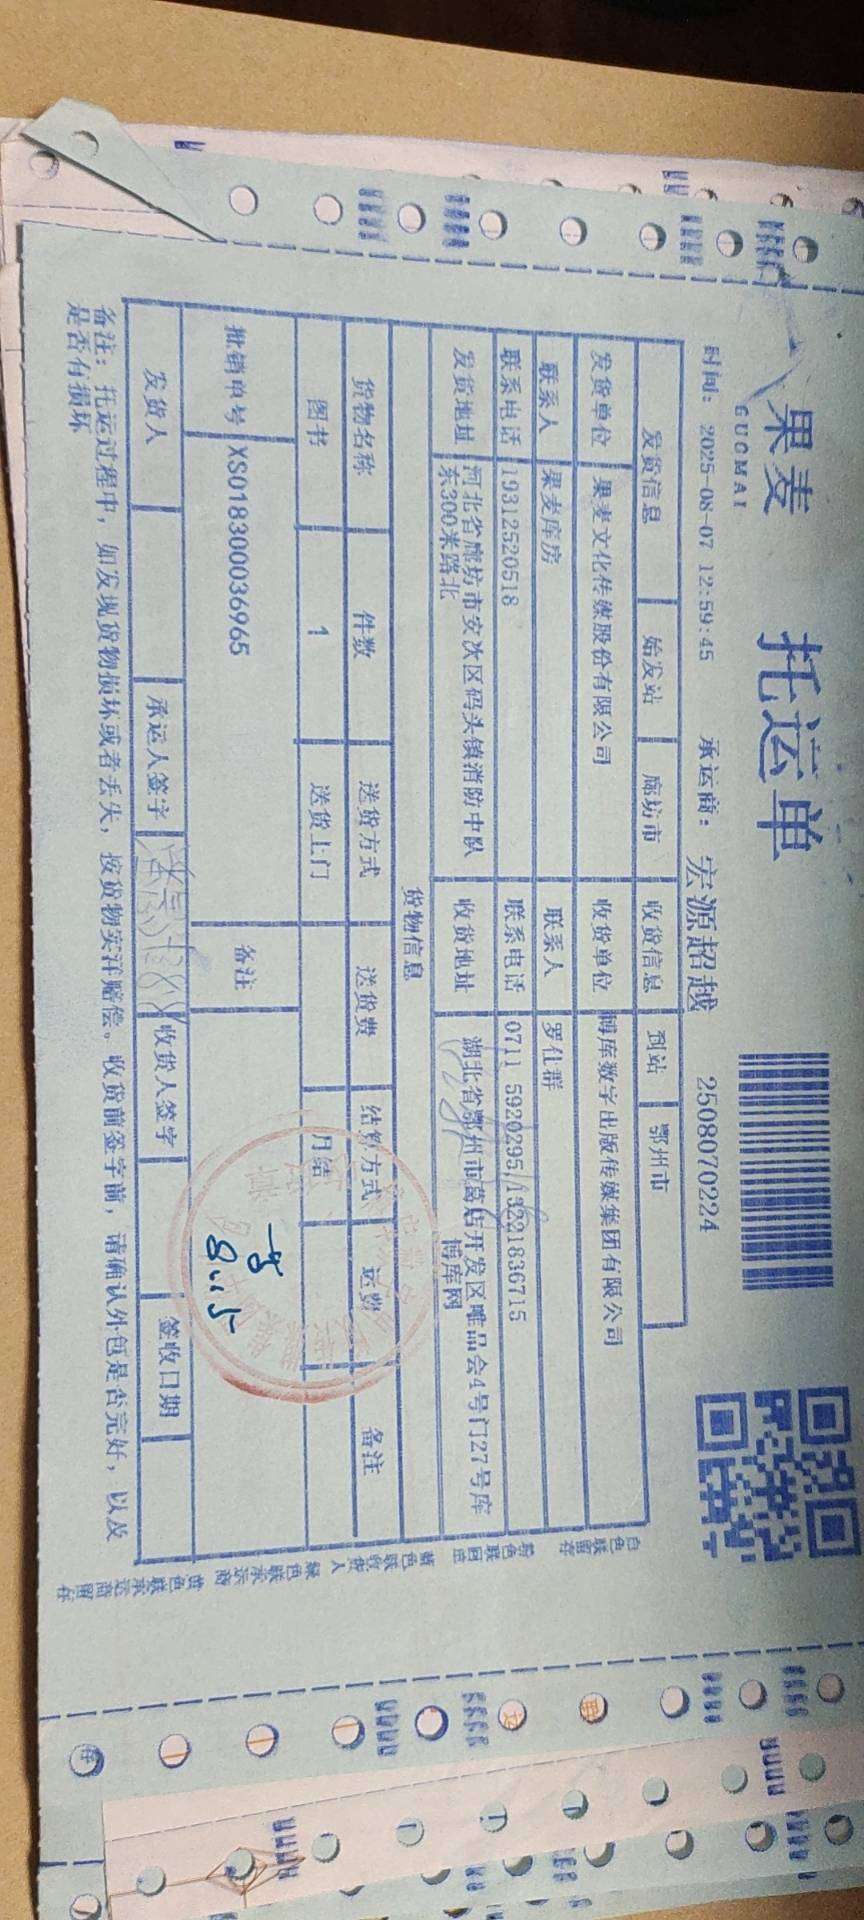 果麦
GUOMAI
托运单
时间：2025-08-07 12:59:45 承运商：宏源超越 2508070224
发货信息 始发站 廊坊市 收货信息 到站 鄂州市
发货单位 果麦文化传媒股份有限公司 收货单位 博库数字出版传媒集团有限公司
联系人 果麦库房 联系人 罗仕群
联系电话 19312520518 联系电话 0711 5920295/13221836715
发货地址 河北省廊坊市安次区码头镇消防中队东300米路北 收货地址 湖北省鄂州市葛店开发区唯品会4号门27号库博库网
货物信息
货物名称 件数 送货方式 送货费 结算方式 运费 备注
图书 1 送货上门 月结
批销单号 XS018300036965 备注
8.15
发货人 承运人签字 收货人签字 签收日期
备注：托运过程中，如发现货物损坏或者丢失，按货物实洋赔偿。收货前签字前，请确认外包是否完好，以及
是否有损坏
白色联留存 粉色联回应 蓝色联收货人 绿色联承运商 黄色联承运商留存